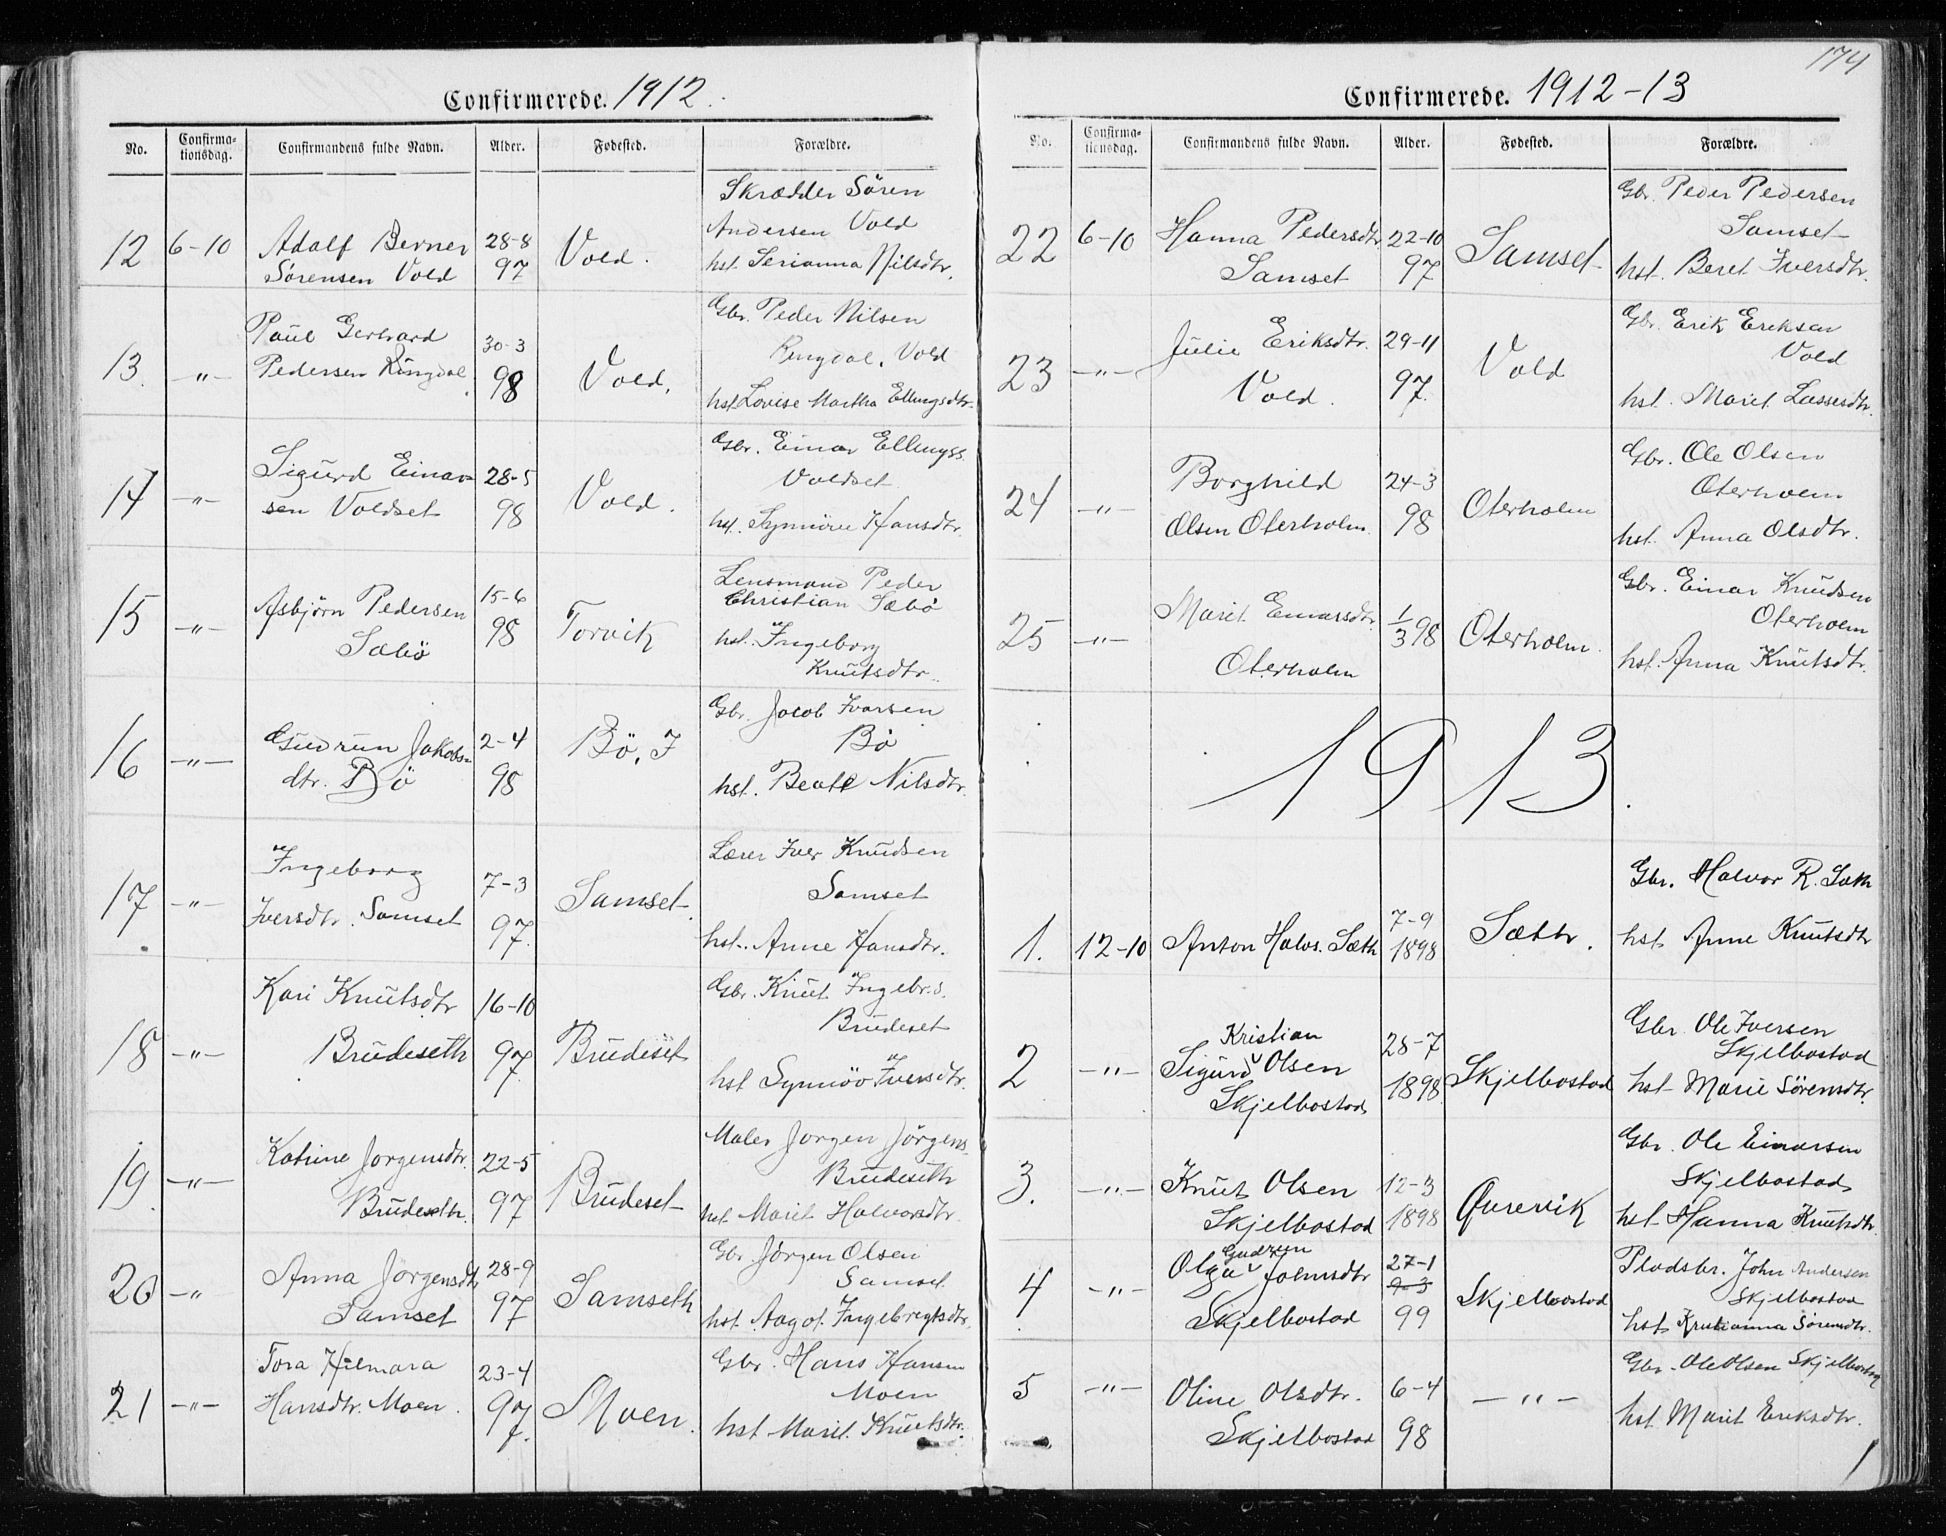 Confirmerede. 1912.
No. Confirmationsdag. Confirmandens fulde Navn. Alder. Fødested. Forældre.
12 6-10 Adolf Berner Sörensen Vold 28-8 97 Vold. Skrædder Sören Andersen Vold hst. Serianna Nilsdtr.
13. -"- Paul Gerhard Pedersen Ringdal. 30-3 98 Vold. Gbr. Peder Nilsen Ringdal, Vold hst. Lovise Martha Ellingsdtr.
14 -"- Sigurd Einarsen Voldset 28-5 98 Vold. Gbr. Einar Ellingss. Voldset hst. Synnöve Hansdtr.
15 -"- Asbjörn Pedersen Sæbö 15-6 98 Torvik Lensmand Peder Christian Sæbö hst. Ingeborg Knutsdtr.
16 -"- Gudrun Jakobsdtr. Bö 2-4 98 Bö, I Gbr. Jacob Ivarsen Bö hst. Beate Nilsdtr.
17 -"- Ingeborg Iversdtr. Samset 7-3 97. Samset. Lærer Iver Knudsen Samset hst. Anne Hansdtr.
18 -"- Kari Knutsdtr Brudeseth 16-10 97 Brudeset Gbr. Knut Ingebr.s. Brudeset hst Synnöv Iversdtr.
19. -"- Katrine Jorgensdtr. Brudeseth. 22-5 97 Brudeset Maler Jorgen Jörgens. Brudeseth hst Marit Halvorsdtr.
20 -"- Anna Jorgensdtr Samset 28-9 97 Samseth Gbr Jörgen Olsen Samset hst. Aagot Ingebregtsdtr.
21 -"- Tora Hilmara Hansdtr. Moen. 23-4 97. Moen. Gbr. Hans Hansen Moen hst Marit Knutsdtr.
174
Confirmerede. 1912-13
No. Confirmationsdag. Confirmandens fulde Navn. Alder. Fødested. Forældre.
22 6-10 Hanna Pedersdtr Samset 22-10 97 Samset Gbr. Peder Pedersen Samset hst. Beret Iversdtr.
23 -"- Julie Eriksdtr. Vold. 29-11 97. Vold Gbr. Erik Eriksen Vold hst. Marit Lassesdtr.
24 -"- Borghild Olsen Oterholm 24-3 98 Oterholm Gbr. Ole Olsen Oterholm hst. Anna Olsdtr.
25 -"- Marit Einarsdtr. Oterholm 1/3 98 Oterholm. Gbr. Einar Knudsen Oterholm hst. Anna Knutsdtr.
1913.
1. 12-10 Anton Halvs. Sæth 7-9 1898 Sæthr. Gbr. Halvor R. Sæth hst Anne Knutsdtr
2 -"- Sigurd Kristian Olsen Skjelbostad 28-7 1898 Skjelbostad Gbr Ole Iversen Skjelbostad hst Marie Sörensdtr.
3. -"- Knut Olsen Skjelbostad 12-3 1898 Qvervik Gbr. Ole Einarsen Skjelbostad hst Hanna Knutsdtr
4 -"- Olga Gudrun Johnsdtr Skjelbostad 27-1 9-3 99 Skjelbostad Pladsbr. John Andersen Skjelbostad hst Kristianna Sörensdtr.
5 -"- Oline Olsdtr. Skjelbostad 6-4 98 -"- Gbr. Ole Olsen Skjelbostad hst Marit Eriksdtr.